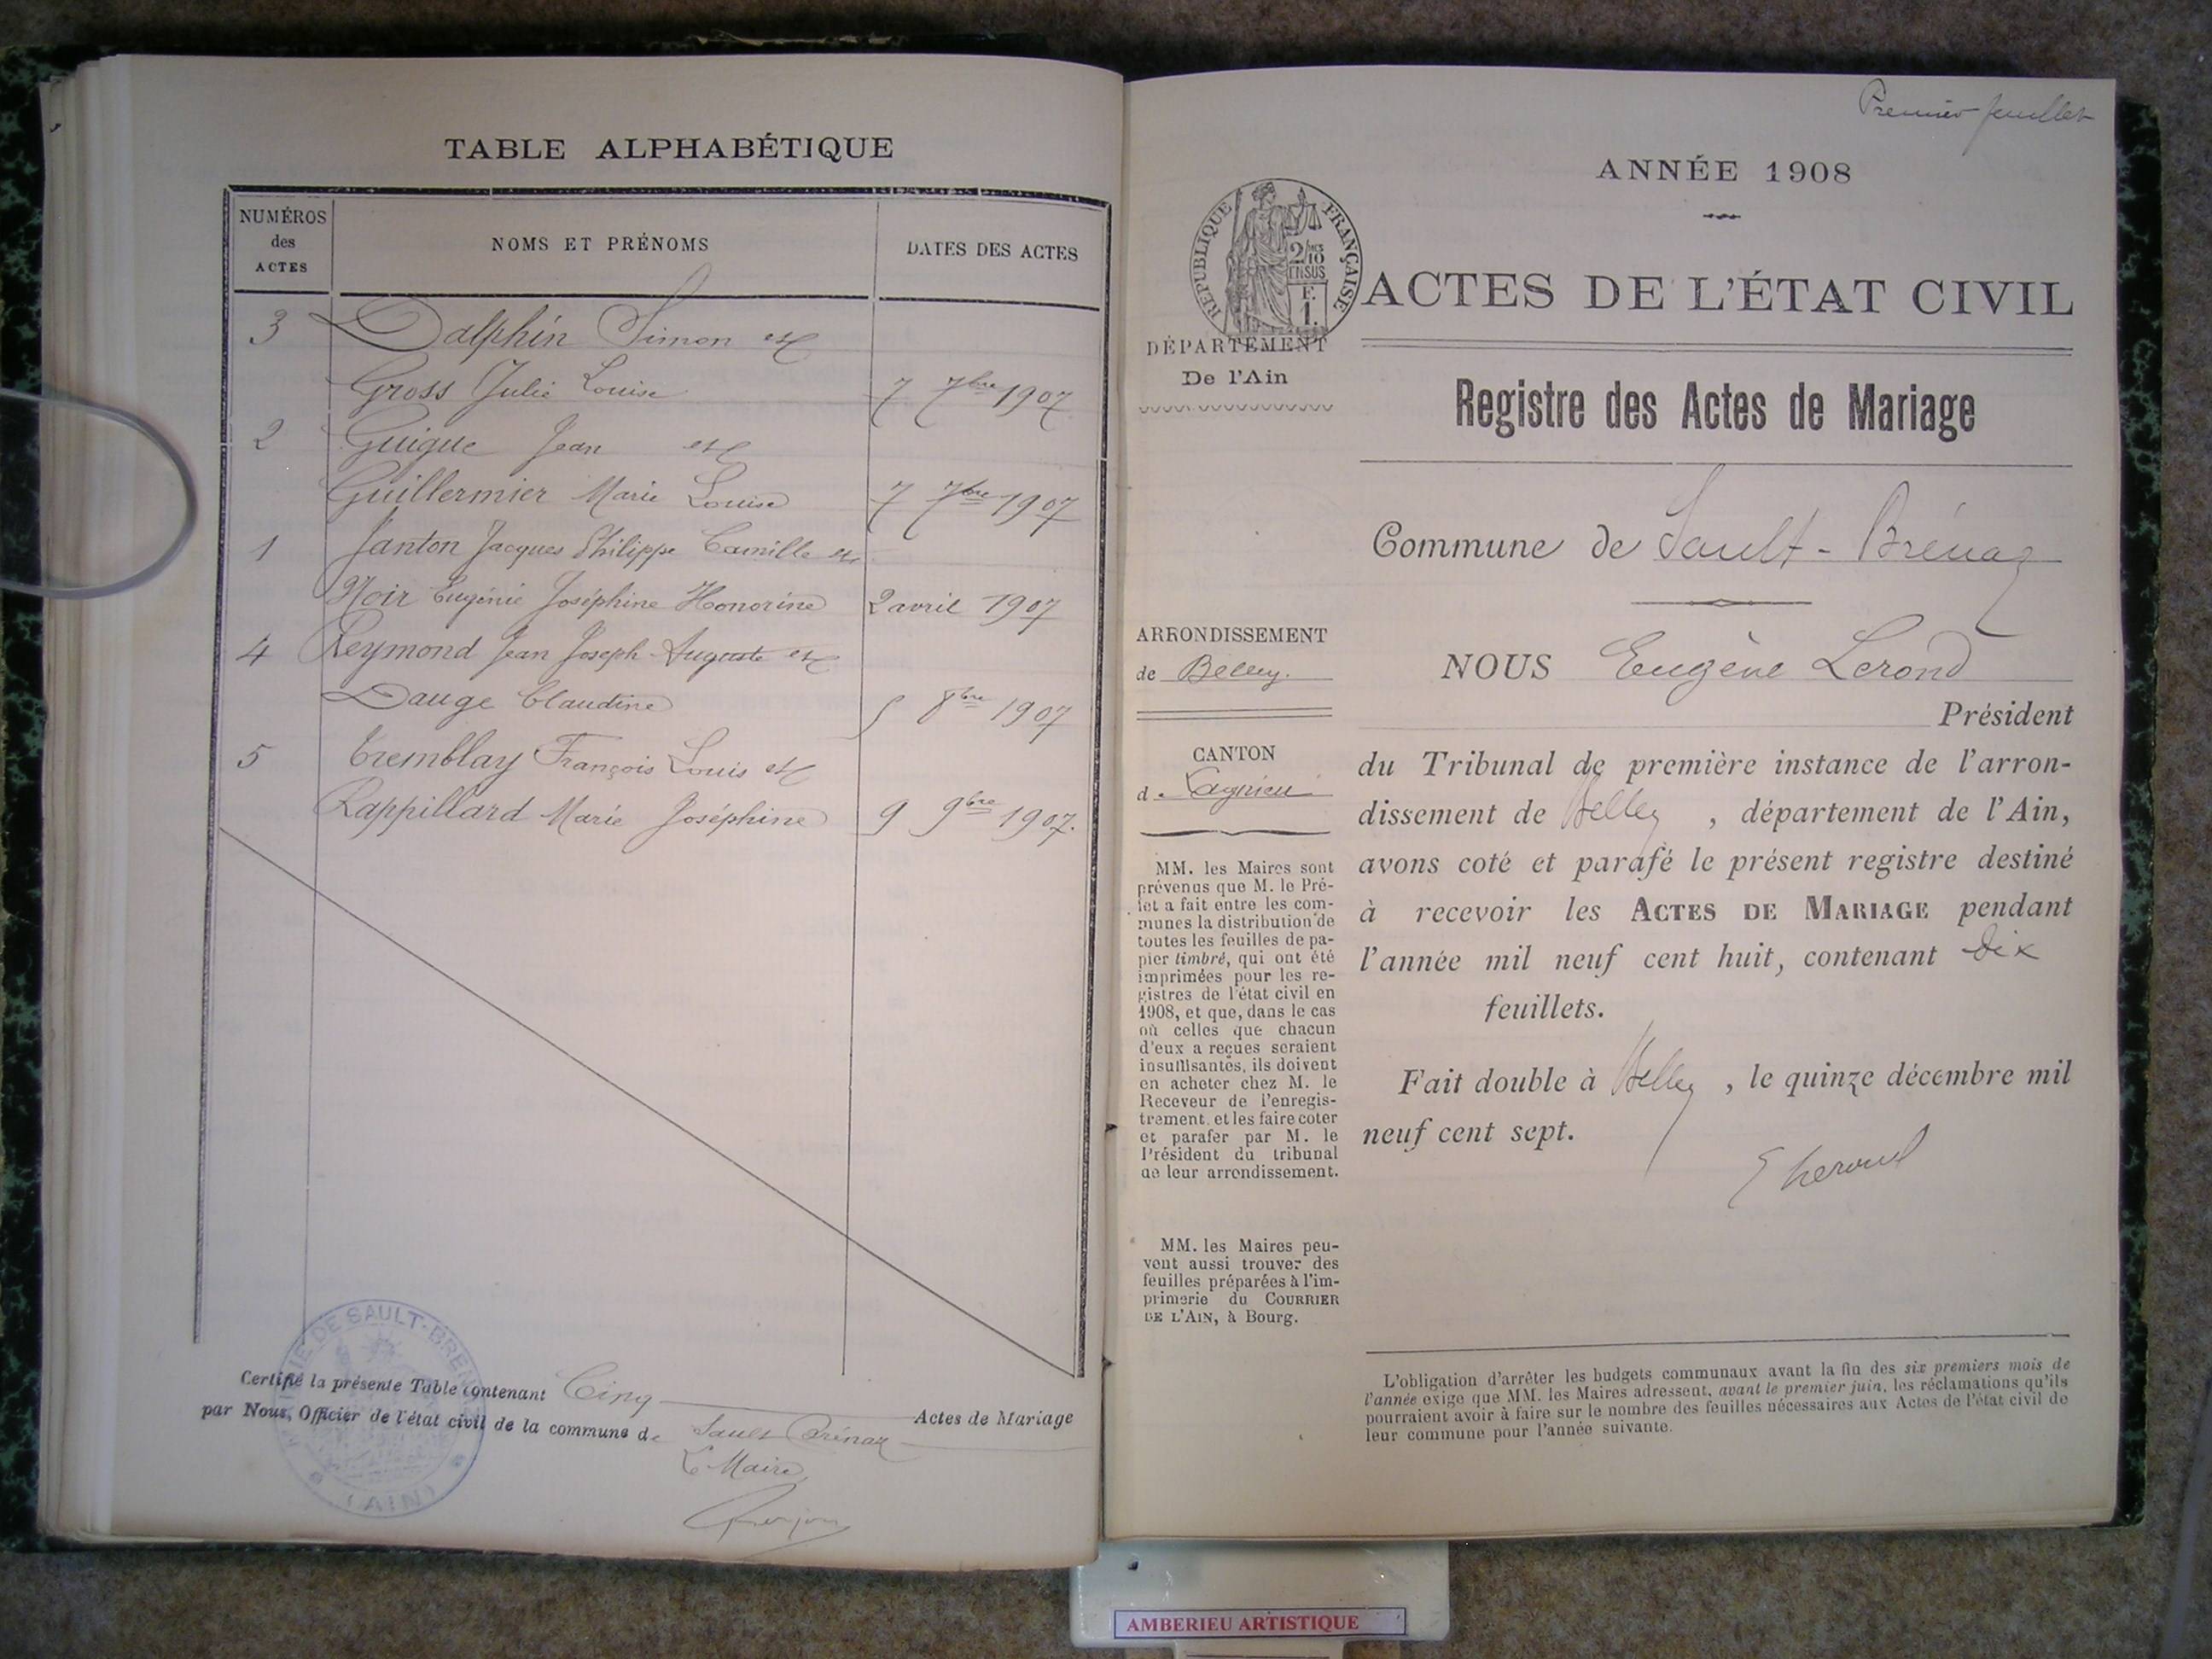 TABLE ALPHABÉTIQUE
NUMÉROS
des
ACTES
NOMS ET PRÉNOMS
DATES DES ACTES
3 Dalphin Simon et
Gross Julie Louise 7 7bre 1907
2 Guigue Jean et
Guillermier Marie Louise 7 7bre 1907
1 Janton Jacques Philippe Camille et
Noir Eugénie Joséphine Honorine 2 avril 1907
4 Reymond Jean Joseph Auguste et
Dauge Claudine 5 8bre 1907
5 Tremblay François Louis et
Rappillard Marie Joséphine 9 9bre 1907.
Certifié la présente Table contenant Cinq Actes de Mariage
par Nous, Officier de l'état civil de la commune de Sault Brénaz
Le Maire
DE SAULT-BRÉN
(AIN)
Premier feuillet
ANNÉE 1908
RÉPUBLIQUE FRANÇAISE
2/10
EN SUS
F.
1.
ACTES DE L'ÉTAT CIVIL
DÉPARTEMENT
De l'Ain
Registre des Actes de Mariage
Commune de Sault-Brénaz
ARRONDISSEMENT
de Belley.
CANTON
de Lagnieu
MM. les Maires sont
prévenus que M. le Pré-
fet a fait entre les com-
munes la distribution de
toutes les feuilles de pa-
pier timbré, qui ont été
imprimées pour les re-
gistres de l'état civil en
1908, et que, dans le cas
où celles que chacun
d'eux a reçues seraient
insuffisantes, ils doivent
en acheter chez M. le
Receveur de l'enregis-
trement, et les faire coter
et parafer par M. le
Président du tribunal
de leur arrondissement.
MM. les Maires peu-
vent aussi trouver des
feuilles préparées à l'im-
primerie du COURRIER
DE L'AIN, à Bourg.
NOUS Eugène Lerond
Président
du Tribunal de première instance de l'arron-
dissement de Belley, département de l'Ain,
avons coté et parafé le présent registre destiné
à recevoir les ACTES DE MARIAGE pendant
l'année mil neuf cent huit, contenant dix
feuillets.
Fait double à Belley, le quinze décembre mil
neuf cent sept.
E Lerond
L'obligation d'arrêter les budgets communaux avant la fin des six premiers mois de
l'année exige que MM. les Maires adressent, avant le premier juin, les réclamations qu'ils
pourraient avoir à faire sur le nombre des feuilles nécessaires aux Actes de l'état civil de
leur commune pour l'année suivante.
AMBERIEU ARTISTIQUE